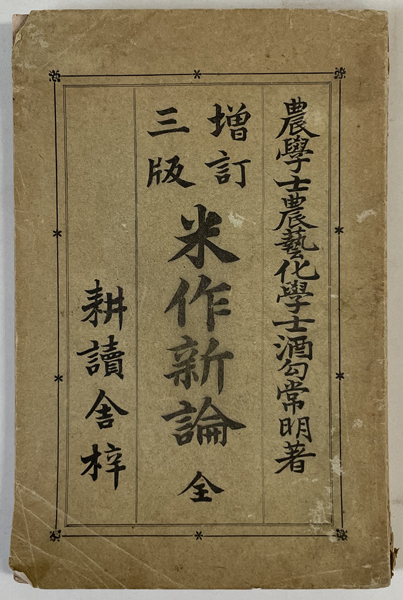 農學士農藝化學士酒匂常明著
增訂
三版
米作新論 全
耕讀舍梓